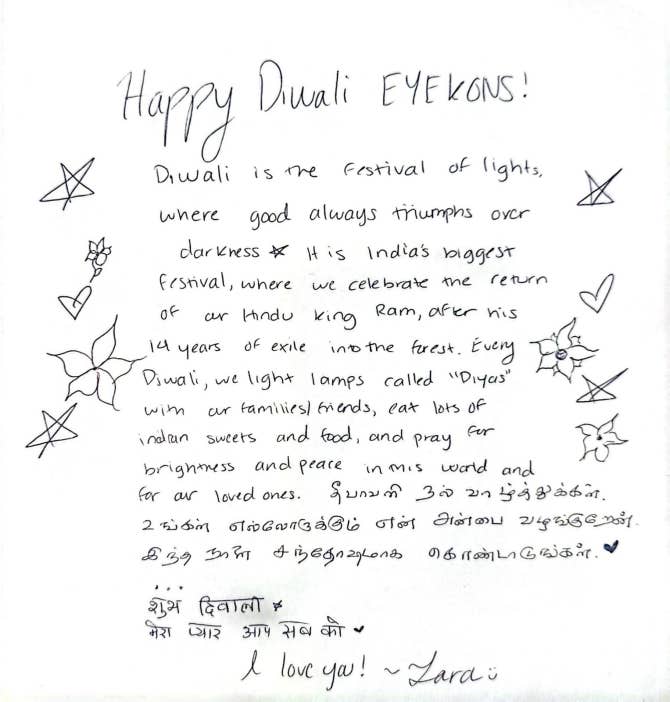 Happy Diwali EYEKONS!
Diwali is the festival of lights,
where good always triumphs over
darkness ★ It is India's biggest
festival, where we celebrate the return
of our Hindu king Ram, after his
14 years of exile into the forest. Every
Diwali, we light lamps called "Diyas"
with our families/friends, eat lots of
indian sweets and food, and pray for
brightness and peace in this world and
for our loved ones. தீபாவளி நல் வாழ்த்துக்கள்.
உங்கள் எல்லோருக்கும் என் அன்பை வழங்குறேன்.
இந்த நாளை சந்தோஷமாக கொண்டாடுங்கள். ♥
...
शुभ दिवाली ★
मेरा प्यार आप सब को ♥
I love ya! ~ Zara